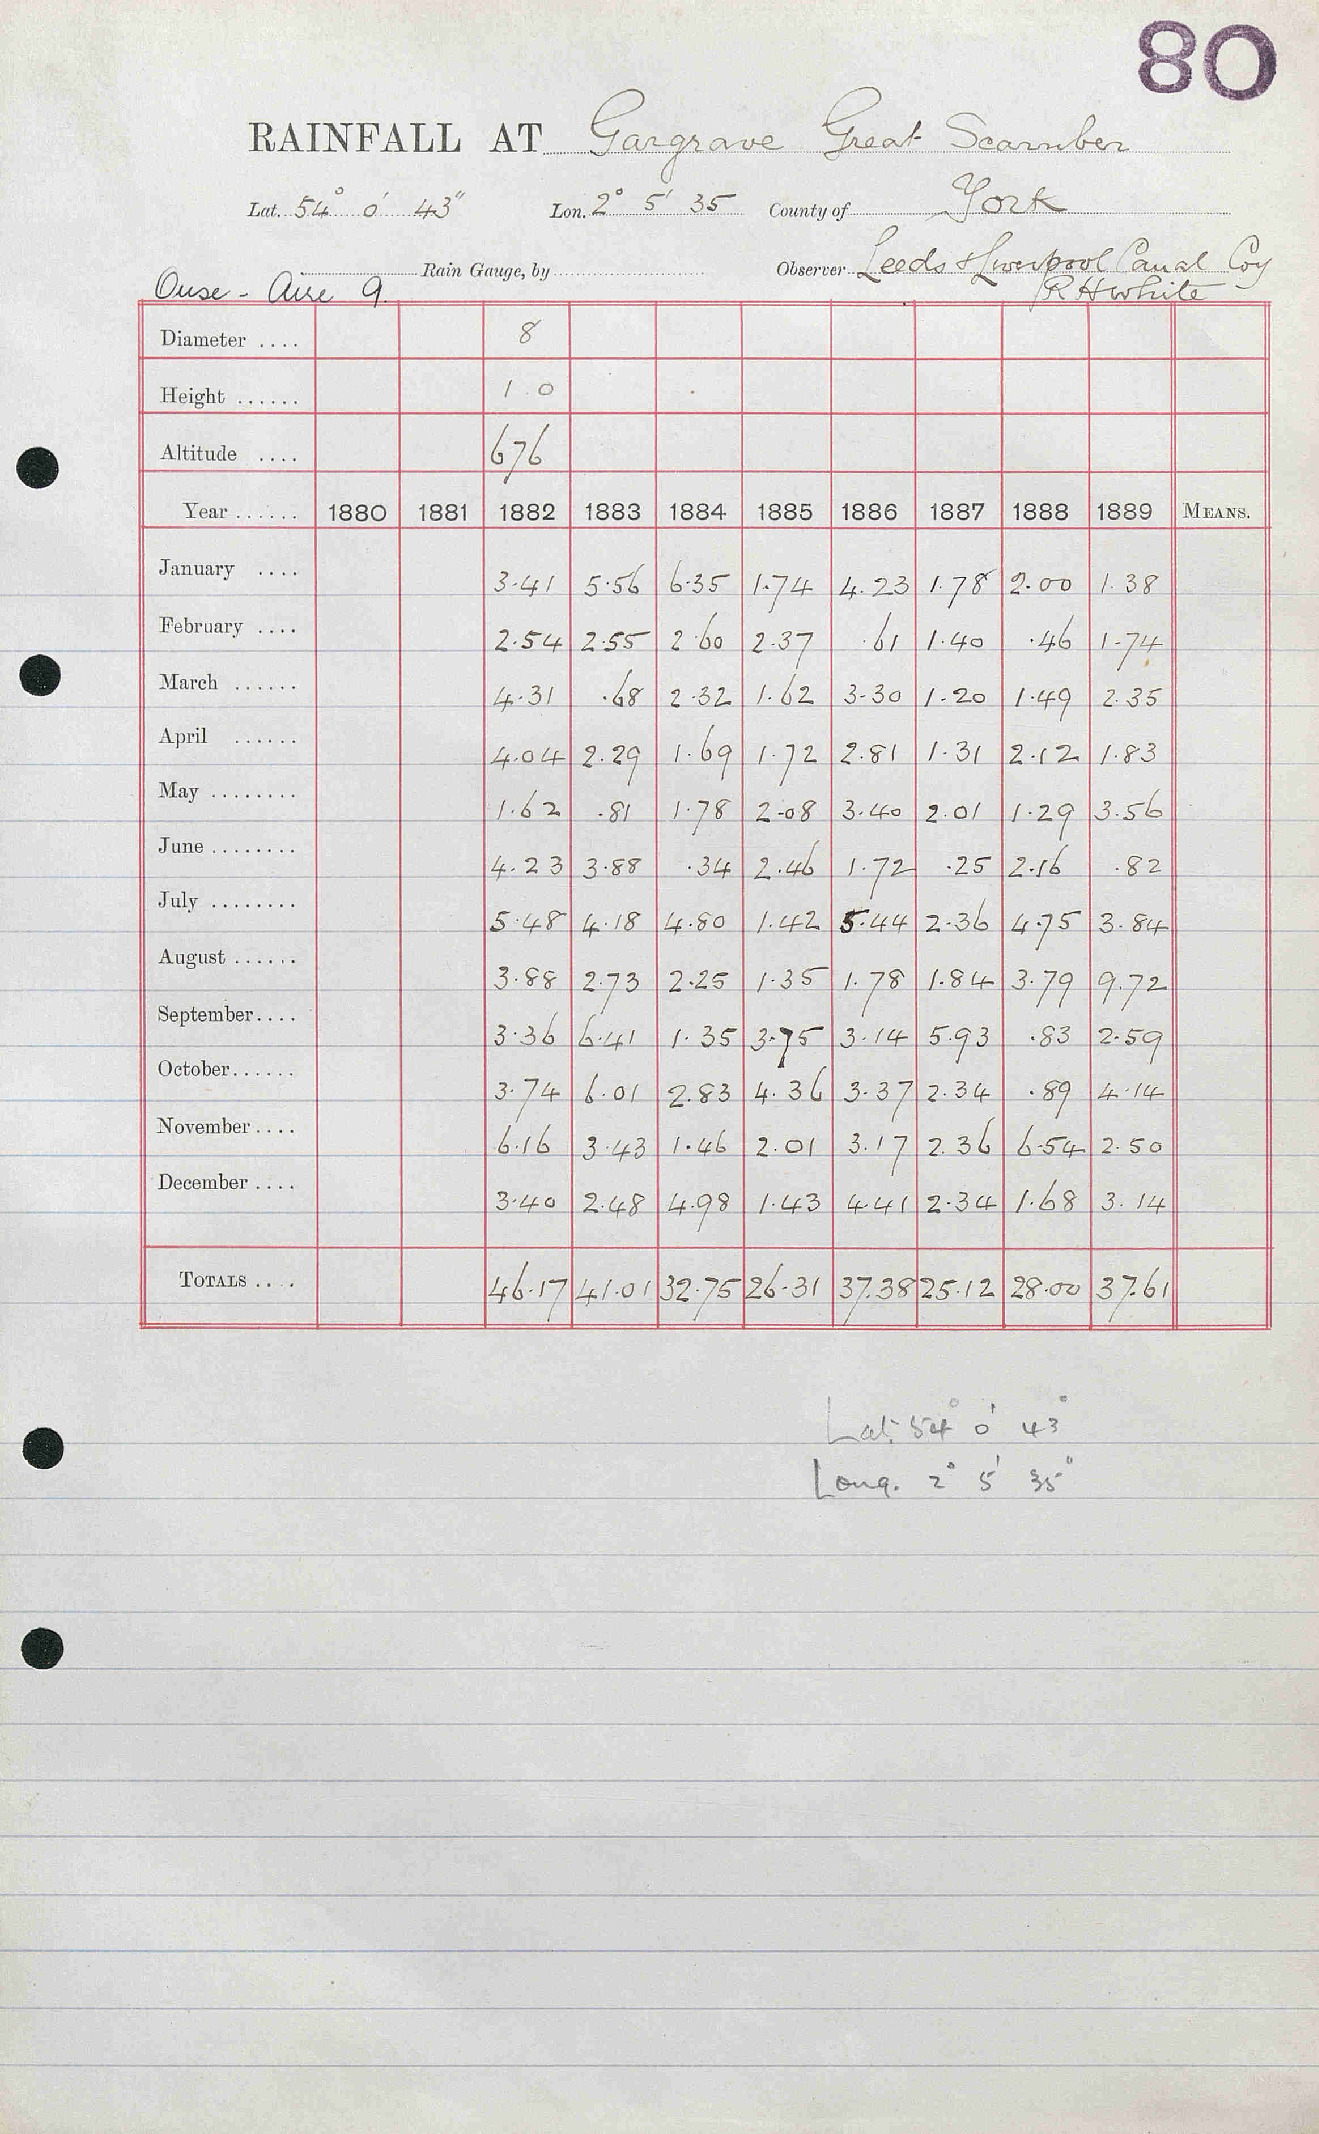 80
RAINFALL AT Gargrave Great Scarnber
Lat. 54° 0' 43" Lon. 2° 5' 35 County of York
Rain Gauge, by Observer Leeds & Liverpool Canal Coy
Ouse - Aire 9. R H White
Diameter .... 8
Height ...... 1 . 0
Altitude .... 676
Year ...... 1880 1881 1882 1883 1884 1885 1886 1887 1888 1889 MEANS.
January .... 3.41 5.56 6.35 1.74 4.23 1.78 2.00 1.38
February .... 2.54 2.55 2.60 2.37 .61 1.40 .46 1.74
March ...... 4.31 .68 2.32 1.62 3.30 1.20 1.49 2.35
April ...... 4.04 2.29 1.69 1.72 2.81 1.31 2.12 1.83
May ........ 1.62 .81 1.78 2.08 3.40 2.01 1.29 3.56
June ........ 4.23 3.88 .34 2.46 1.72 .25 2.16 .82
July ........ 5.48 4.18 4.80 1.42 5.44 2.36 4.75 3.84
August ...... 3.88 2.73 2.25 1.35 1.78 1.84 3.79 9.72
September.... 3.36 6.41 1.35 3.75 3.14 5.93 .83 2.59
October...... 3.74 6.01 2.83 4.36 3.37 2.34 .89 4.14
November.... 6.16 3.43 1.46 2.01 3.17 2.36 6.54 2.50
December .... 3.40 2.48 4.98 1.43 4.41 2.34 1.68 3.14
TOTALS .... 46.17 41.01 32.75 26.31 37.38 25.12 28.00 37.61
Lat. 54° 0' 43"
Long. 2° 5' 35"